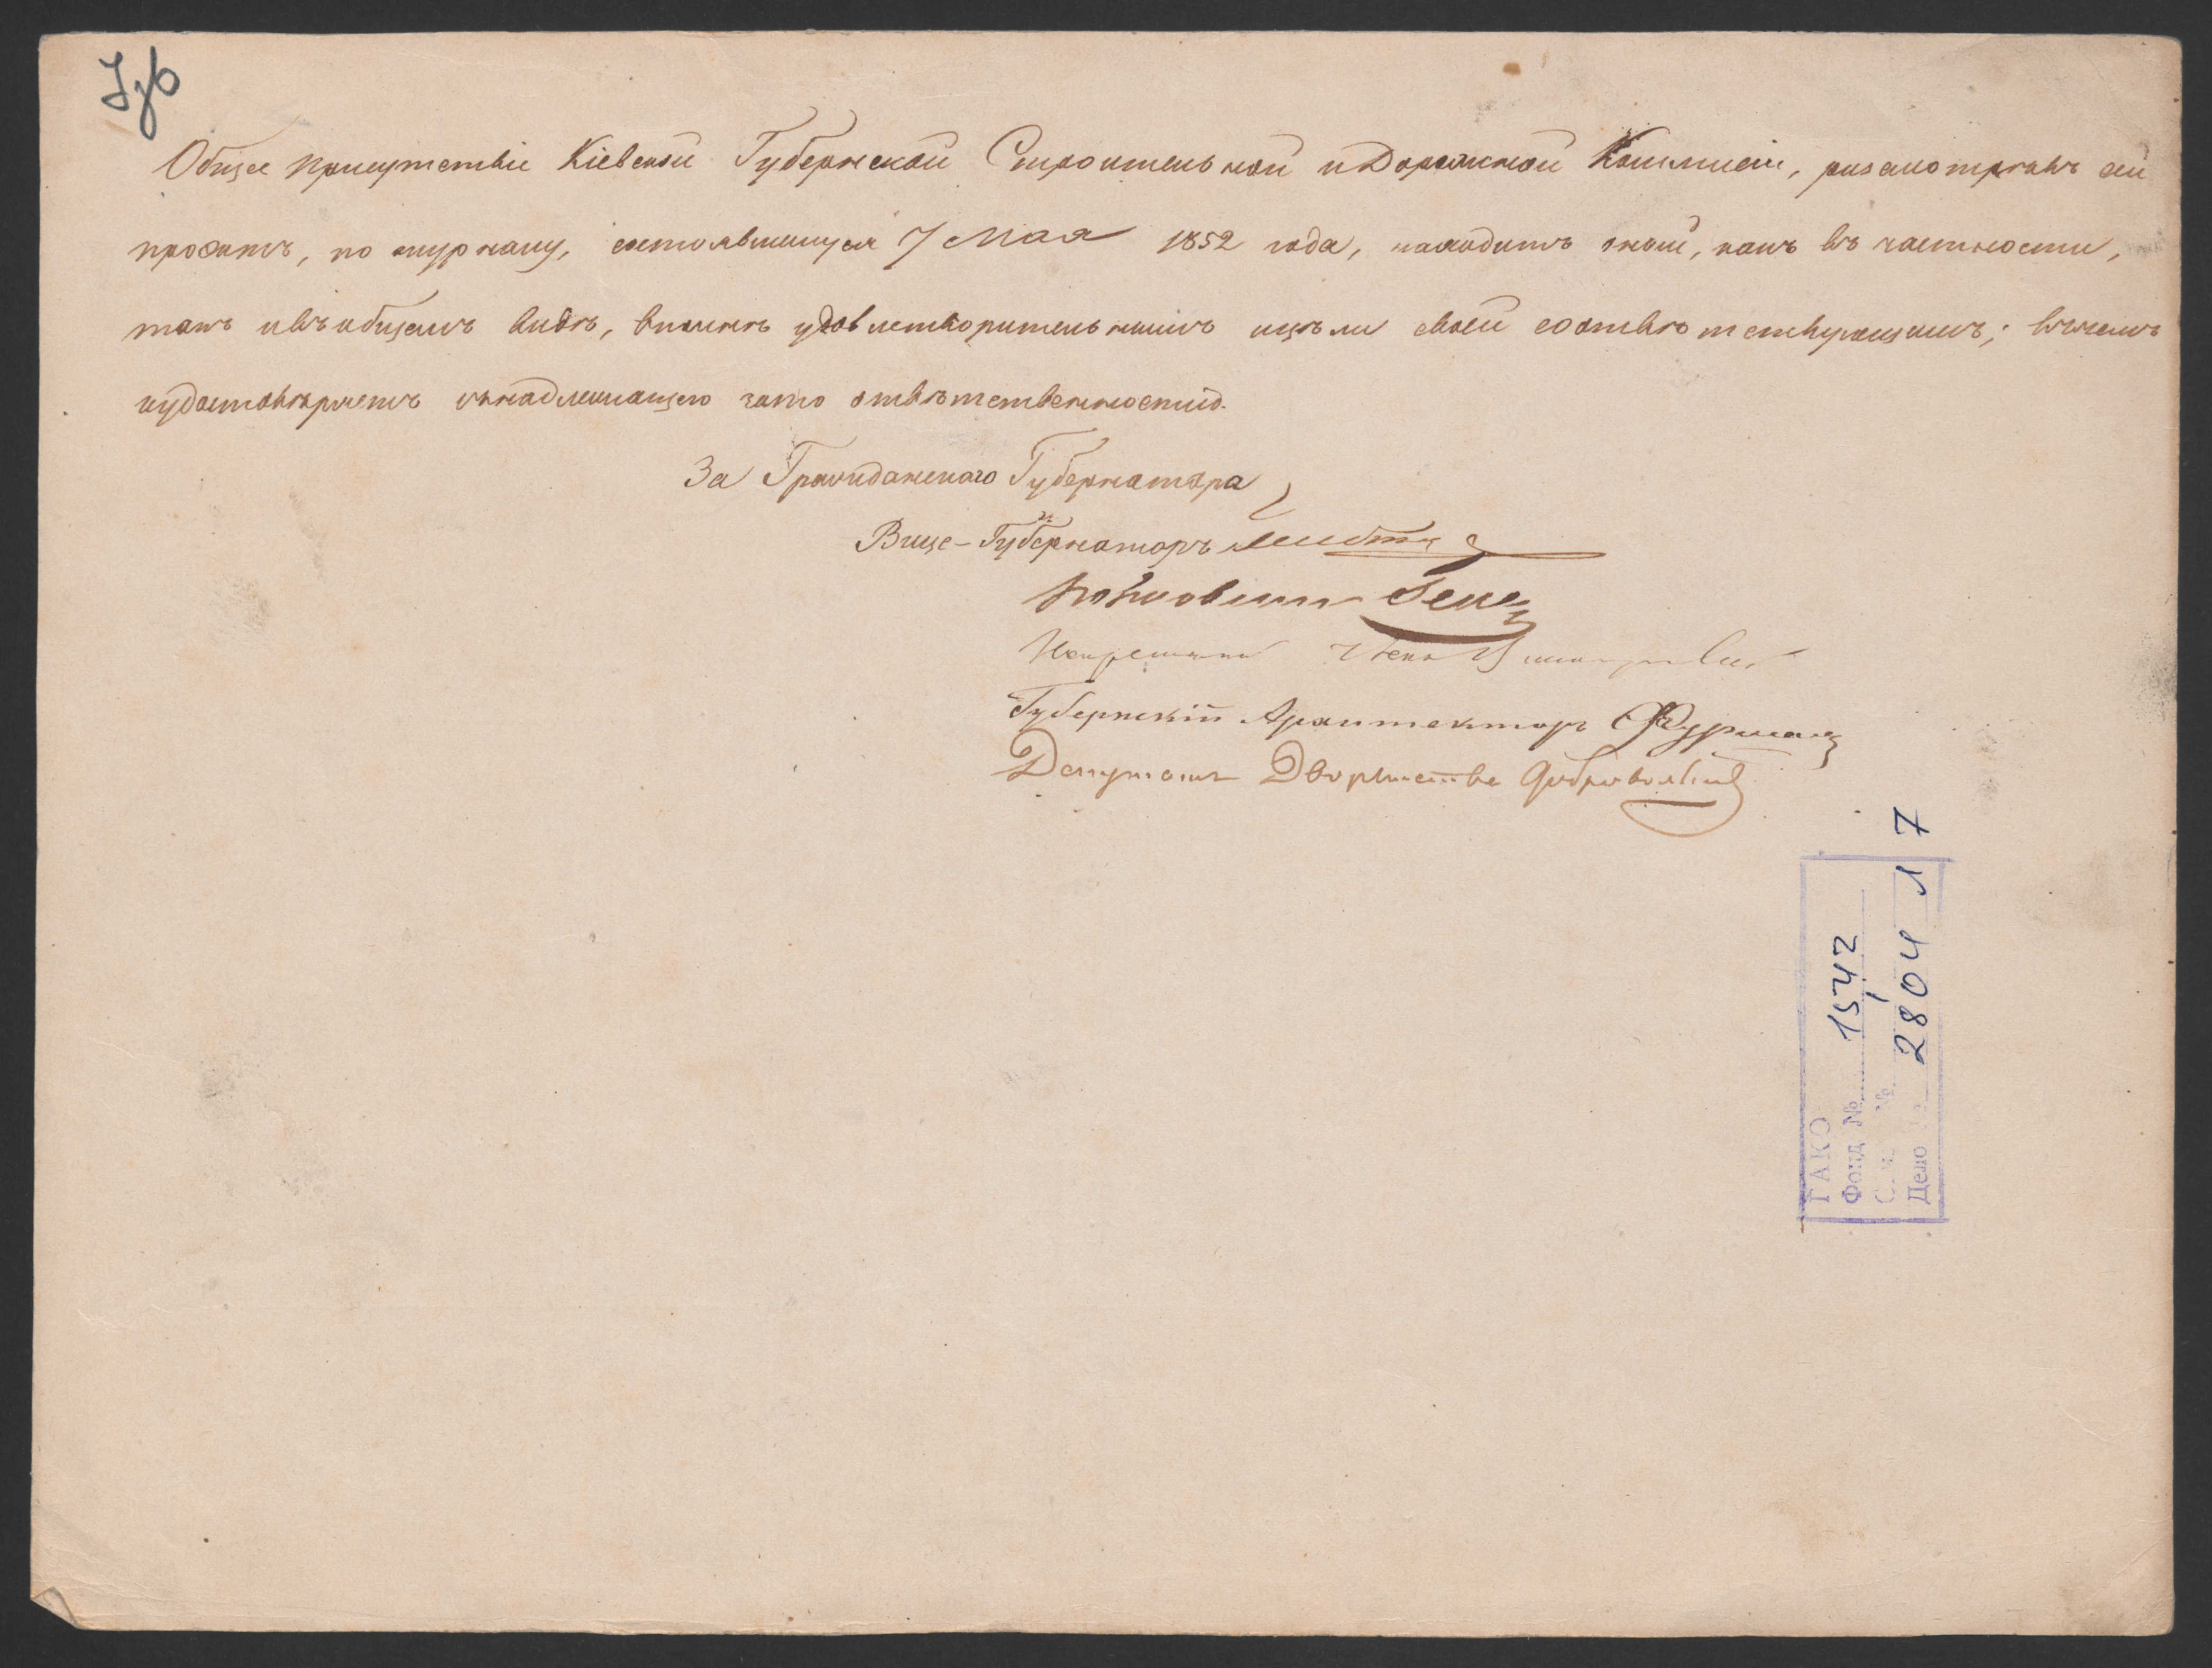 Общее присутствіе Кіевской Губернской Строительной и Дорожной Коммисіи, разсмотрѣвъ сей
проэктъ, по журналу, состоявшемуся 7 Мая 1852 года, находитъ оный, какъ въ частности,
такъ и въ общемъ видѣ, вполнѣ удовлетворительнымъ и цѣли своей соотвѣтствующимъ; въ чемъ
и удостовѣряетъ съ надлежащею за то отвѣтственностію.
За Гражданскаго Губернатора
Вице-Губернаторъ
Полковникъ
Губернскій Архитекторъ Фурманъ
Депутатъ Дворянства Добровольскій
ГАКО
Фонд № 1542
Дело 2804 л 7